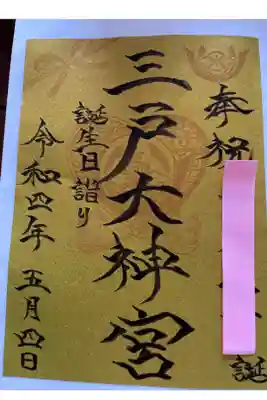 奉祝 誕
三戸大神宮
誕生日詣り
令和四年 五月四日